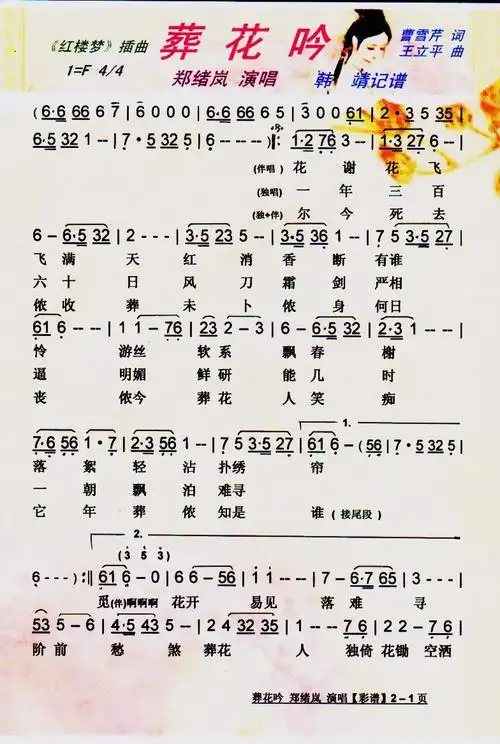 《红楼梦》插曲 葬花吟 曹雪芹 词
1=F 4/4 王立平 曲
郑绪岚 演唱 韩 靖记谱
(6·6 66 67 | 6000 | 6·6 66 65 | 300 61 | 2·3535
6·5 32 1-- | 7·5 32 5 | 6---) 𝄋 ‖: 1·2 76 3-- | 1·3 27 6-- |
(伴唱) 花 谢 花 飞
(独唱) 一 年 三 百
(独+伴) 尔 今 死 去
6-6·5 32 | 2--- | 3·5 25 7-- | 3·5 36 1-- | 75 3·5 27 |
飞 满 天 红 消 香 断 有谁
六 十 日 风 刀 霜 剑 严相
侬 收 葬 未 卜 侬 身 何日
61 6-- | 11-76 | 23 2-3- | 6-6·5 32 | 2·3 1-- |
怜 游丝 软 系 飘 春 榭
逼 明媚 鲜 研 能 几 时
丧 侬今 葬 花 人 笑 痴
1.
7·6 56 1·7 | 2·3 56 1-- | 75 3·5 27 | 61 6-(56 | 7·5 32 5 |
落 絮 轻 沾 扑绣 帘
一 朝 飘 泊 难寻
它 年 葬 侬 知是 谁 (接尾段)
2.
(3 5 3)
6---) :‖ 61 6-0 | 66-56 | 11-- | 7-6·7 65 | 3--- |
觅(伴)啊啊啊 花开 易见 落 难 寻
53 5-6 | 4·5 43 5- | 2432 5- | 1--76 | 22-76 |
阶 前 愁 煞 葬花 人 独倚 花锄 空洒
葬花吟 郑绪岚 演唱【彩谱】2-1页